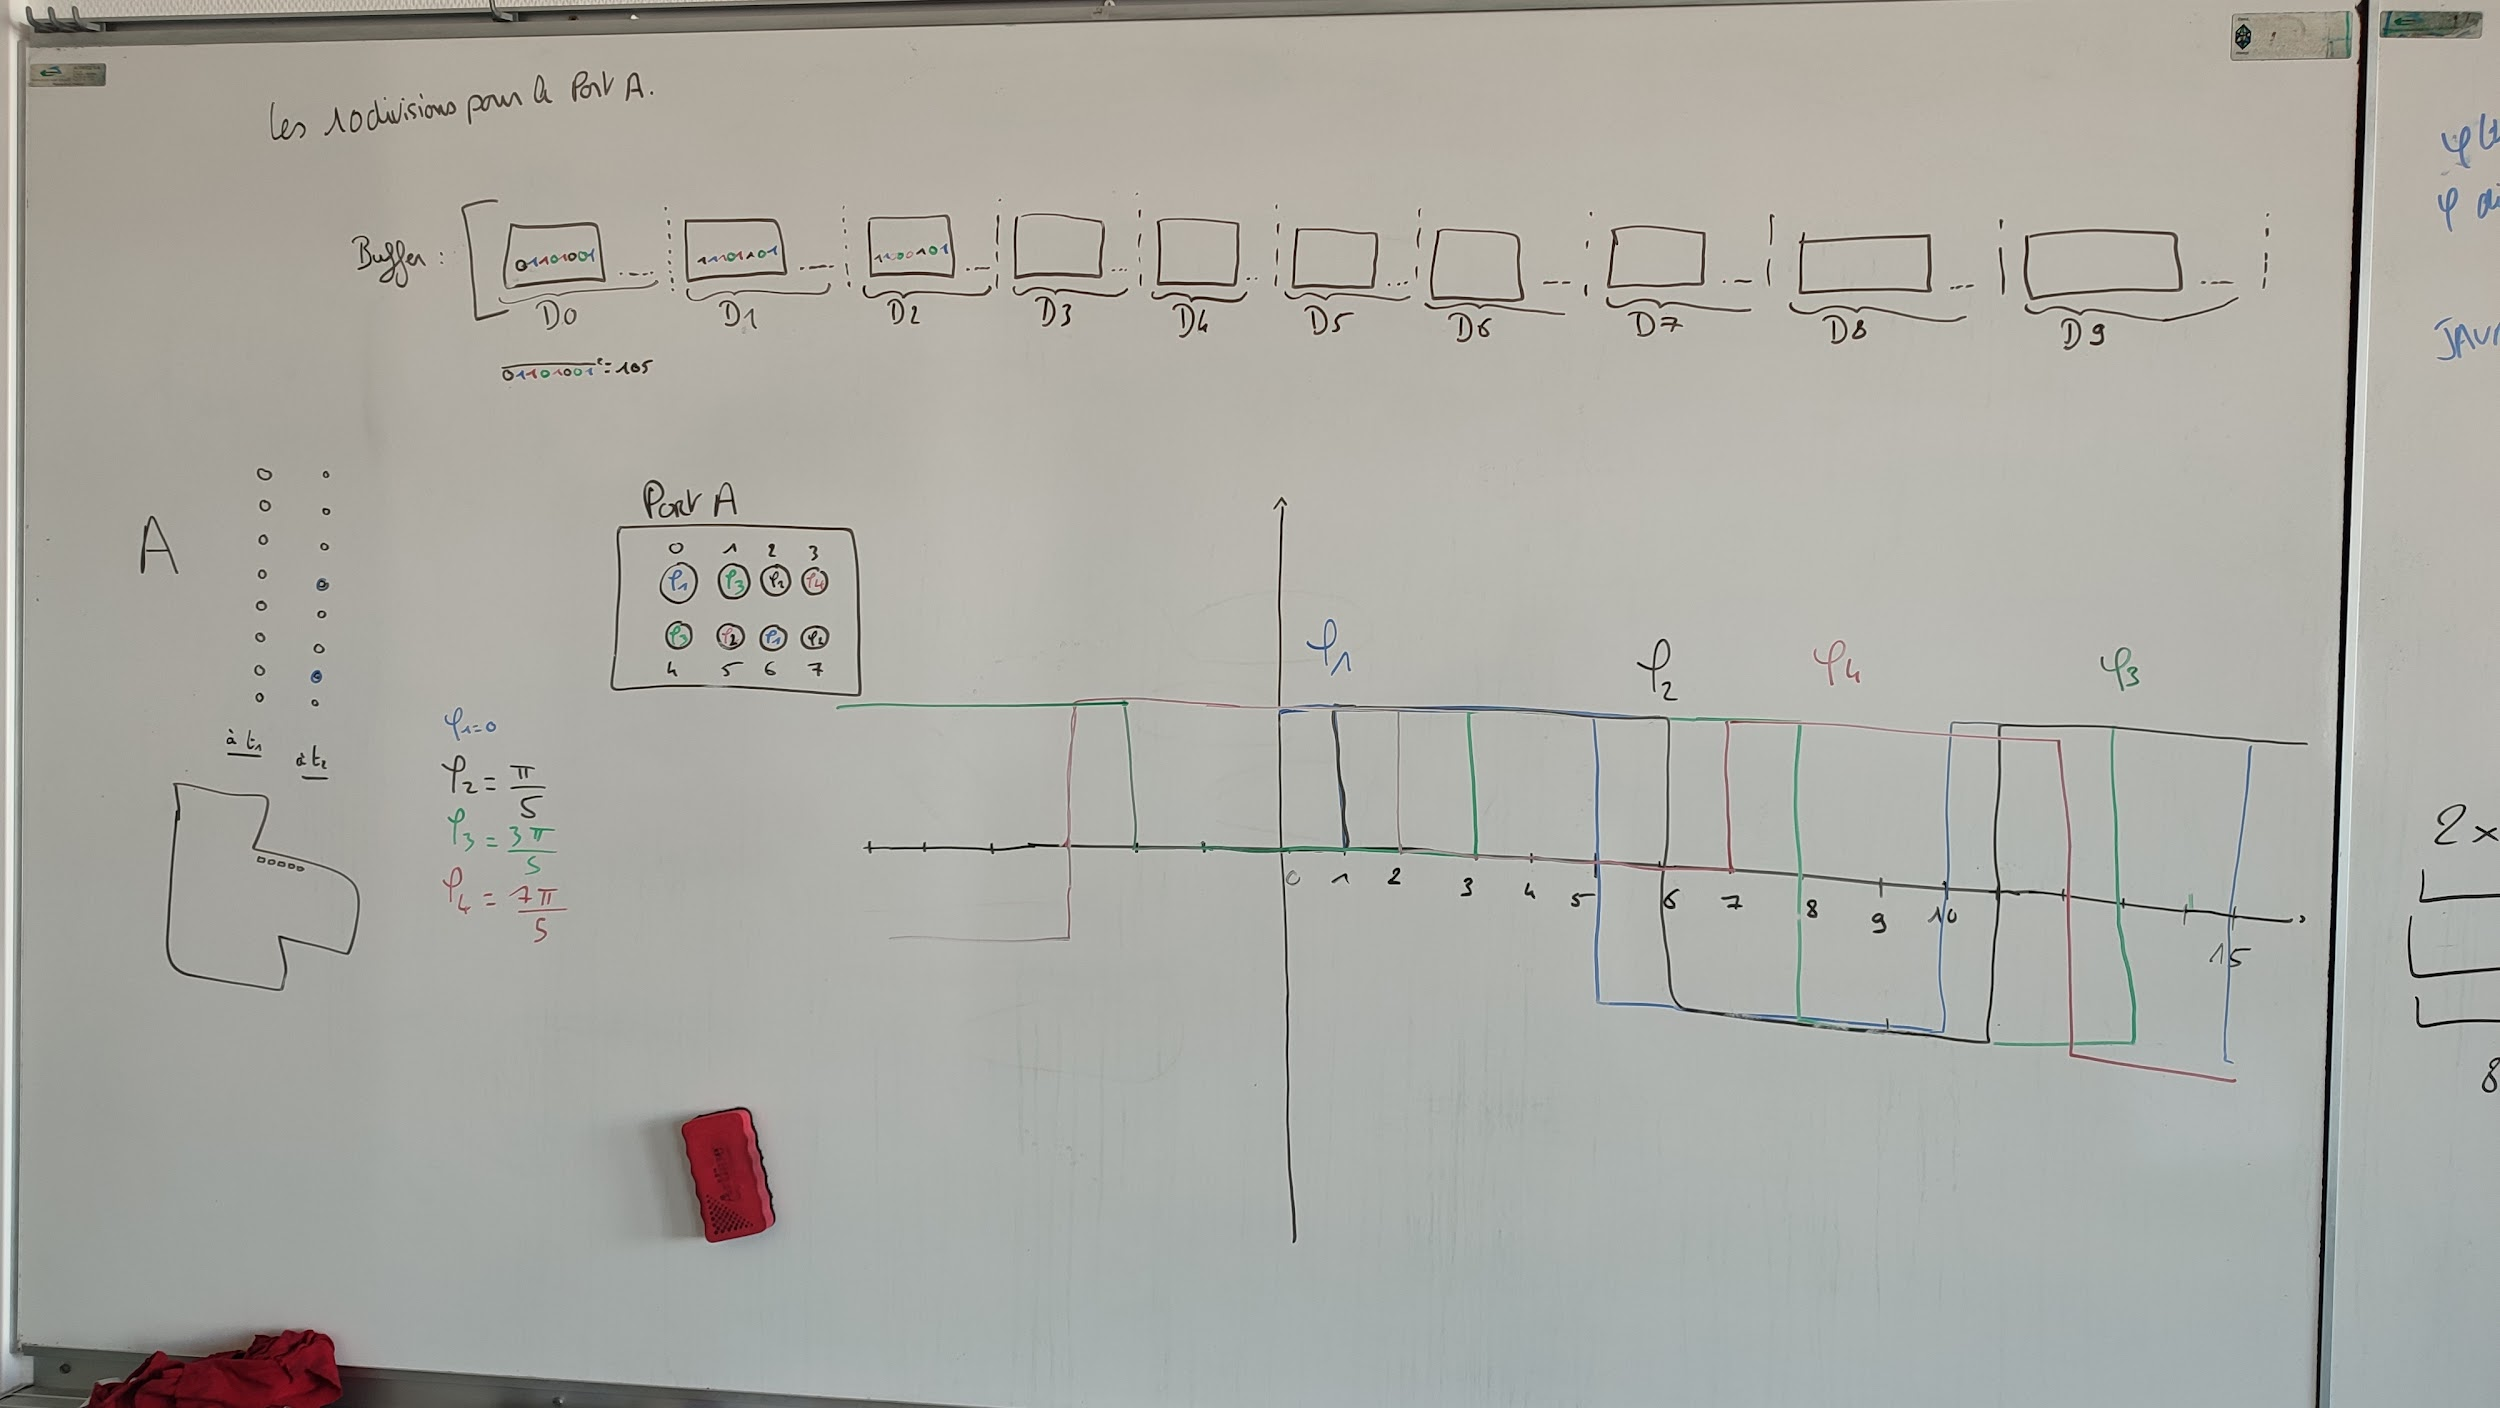 Les 10 divisions pour le Port A.
Buffer : [ 01101001 .... 11101101 .... 1100101 ...
D0 D1 D2 D3 D4 D5 D6 D7 D8 D9
01101001² = 105
A
à t1
à t2
Port A
0 1 2 3
φ1 φ3 φ2 φ4
φ3 φ2 φ1 φ2
4 5 6 7
φ1 = 0
φ2 = π/5
φ3 = 3π/5
φ4 = 7π/5
φ1 φ2 φ4 φ3
0 1 2 3 4 5 6 7 8 9 10 15
φ
φ
JAV
2x
8